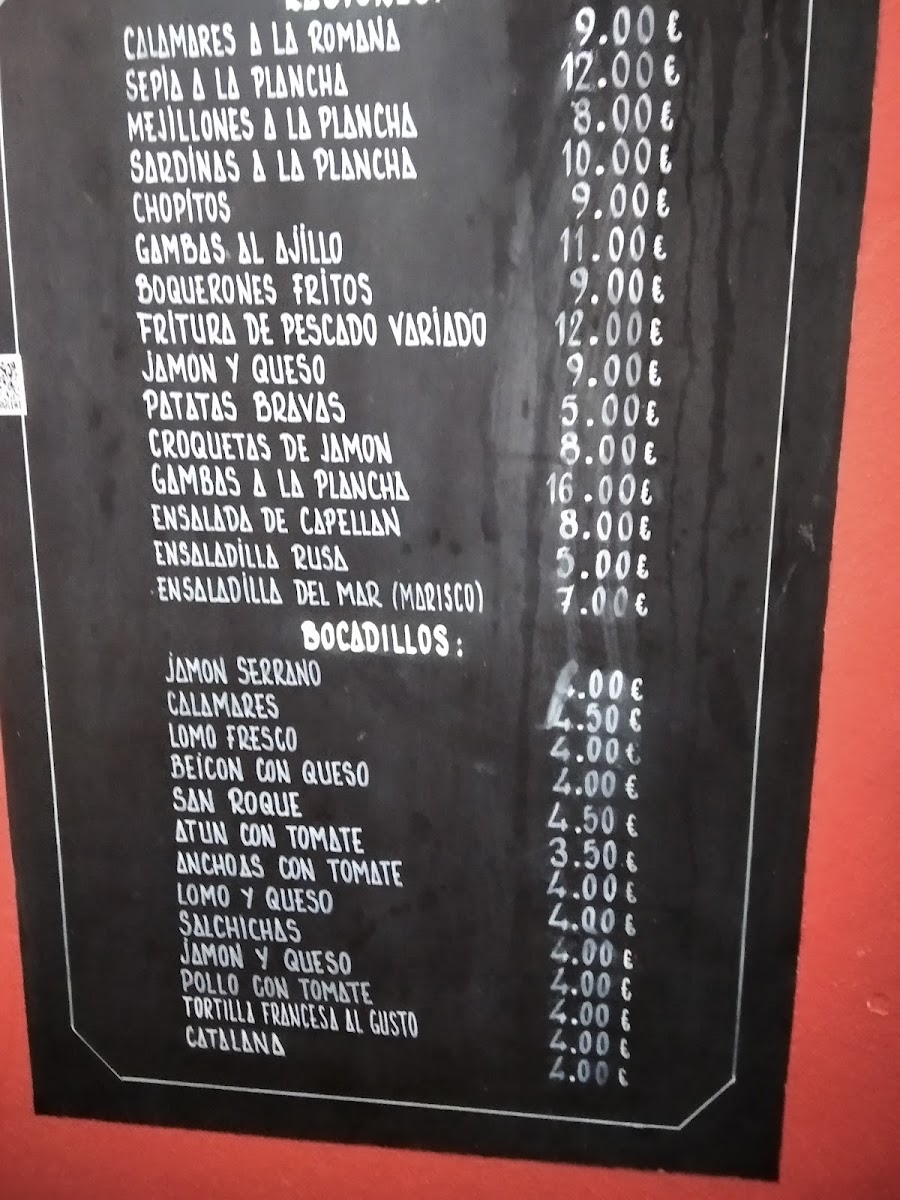 RACIONES:
CALAMARES A LA ROMANA 9.00 €
SEPIA A LA PLANCHA 12.00 €
MEJILLONES A LA PLANCHA 8.00 €
SARDINAS A LA PLANCHA 10.00 €
CHOPITOS 9.00 €
GAMBAS AL AJILLO 11.00 €
BOQUERONES FRITOS 9.00 €
FRITURA DE PESCADO VARIADO 12.00 €
JAMON Y QUESO 9.00 €
PATATAS BRAVAS 5.00 €
CROQUETAS DE JAMON 8.00 €
GAMBAS A LA PLANCHA 16.00 €
ENSALADA DE CAPELLAN 8.00 €
ENSALADILLA RUSA 5.00 €
ENSALADILLA DEL MAR (MARISCO) 7.00 €
BOCADILLOS:
JAMON SERRANO 4.00 €
CALAMARES 4.50 €
LOMO FRESCO 4.00 €
BEICON CON QUESO 4.00 €
SAN ROQUE 4.50 €
ATUN CON TOMATE 3.50 €
ANCHOAS CON TOMATE 4.00 €
LOMO Y QUESO 4.00 €
SALCHICHAS 4.00 €
JAMON Y QUESO 4.00 €
POLLO CON TOMATE 4.00 €
TORTILLA FRANCESA AL GUSTO 4.00 €
CATALANA 4.00 €